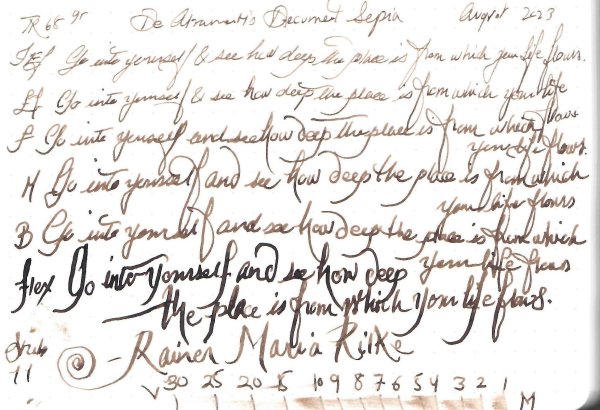 TR 68 gr De Atramentis Document Sepia August 2023
EF Go into yourself & see how deep the place is from which your life flows.
Ef Go into yourself & see how deep the place is from which your life flows
F Go into yourself and see how deep the place is from which
your life flows.
M Go into yourself and see how deep the place is from which
your life flows
B Go into yourself and see how deep the place is from which
your life flows
flex Go into yourself and see how deep
the place is from which your life flows.
- Rainer Maria Rilke
30 25 20 15 10 9 8 7 6 5 4 3 2 1
M